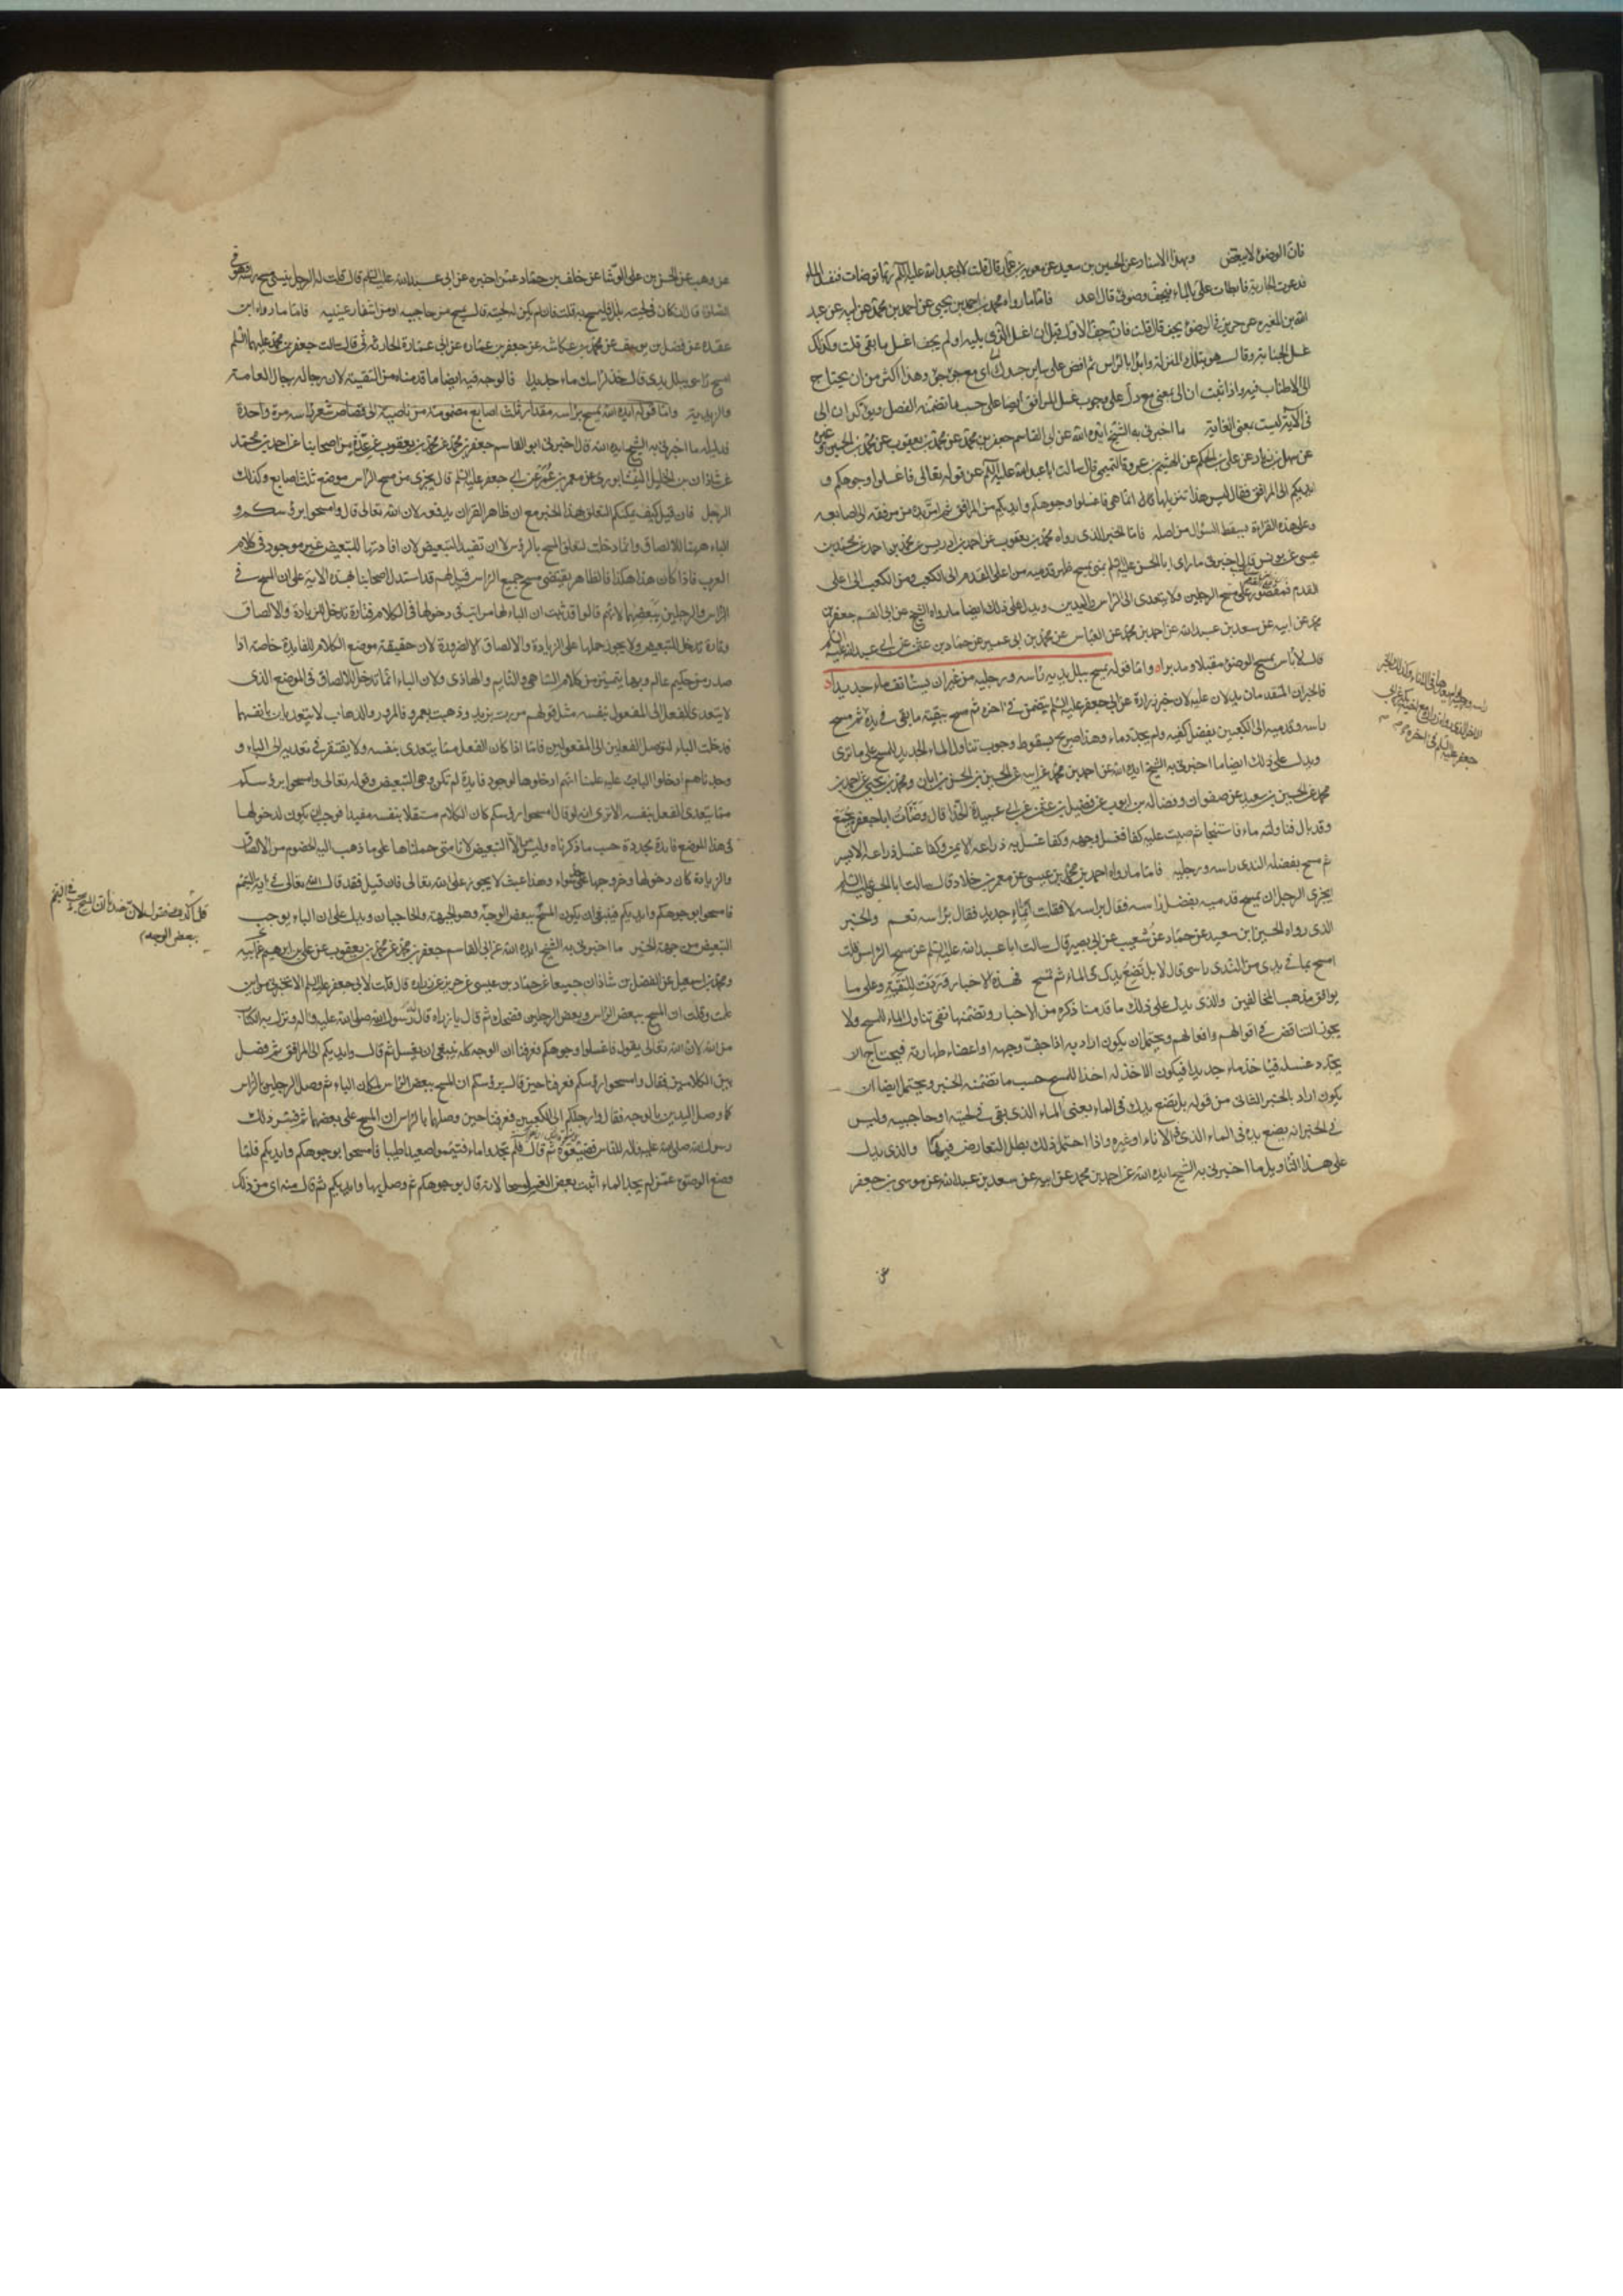 فان الوضوء لا يبعض وبهذا الاسناد عن الحسين بن سعيد عن معوية بن عمار قال قلت لابي عبدالله عليه السلم ربما توضات فنفد الماء
فدعوت الجارية فابطات على بالماء فيجف وضوئى قال اعد فاما ما رواه محمد بن احمد بن يحيى عن احمد بن محمد عن ابيه عن عبد
الله بن المغيرة عن حريز فى الوضوء يجف قال قلت فان جف الاول قبل ان اغسل الذى يليه قال جف او لم يجف اغسل ما بقى قلت وكذلك
غسل الجنابة قال هو بتلك المنزلة وابدا بالراس ثم افض على ساير جسدك
الى الاطناب فيه واذا ثبت ان الى بمعنى مع دل على وجوب غسل المرافق ايضا على حسب ما تضمنه الفصل
فى الآية ليست بمعنى الغاية ما اخبرنى به الشيخ ايده الله عن ابى القاسم جعفر بن محمد عن محمد بن يعقوب عن محمد بن الحسين وغيره
عن سهل بن زياد عن على بن الحكم عن الهيثم بن عروة التميمى قال سالت ابا عبدالله عليه السلم عن قوله تعالى فاغسلوا وجوهكم و
ايديكم الى المرافق فقال ليس هكذا تنزيلها انما هى فاغسلوا وجوهكم وايديكم من المرافق ثم امر يده من مرفقه الى اصابعه
وعلى هذه القراءة يسقط السؤال من اصله فاما الخبر الذى رواه محمد بن يعقوب عن احمد بن ادريس عن محمد بن احمد عن محمد بن
عيسى عن يونس قال اخبرنى من راى ابا الحسن عليه السلم بمنى يمسح ظهر قدميه من اعلى القدم الى الكعب ومن الكعب الى اعلى
القدم فمقصور على مسح الرجلين ولا يتعدى الى الراس واليدين ويدل على ذلك ايضا ما رواه الشيخ عن ابى القسم جعفر بن
محمد عن ابيه عن سعد بن عبدالله عن احمد بن محمد عن العباس عن محمد بن ابى عمير عن حماد بن عثمن عن ابى عبد الله عليه السلم
قال لا باس بمسح الوضوء مقبلا ومدبرا واما قوله يمسح ببلل يديه راسه ورجليه من غير ان يستانف ماء جديدا
فالخبران المتقدمان يدلان عليه لان خبر زرارة عن ابى جعفر عليه السلم يتضمن فى اخره ثم مسح ببقية ما بقى فى يده ثم مسح
راسه وقدميه الى الكعبين بفضل كفيه ولم يجدد ماء وهذا صريح بسقوط وجوب تناول الماء الجديد للمسح على ما ترى
ويدل على ذلك ايضا ما اخبرنى به الشيخ ايده الله عن احمد بن محمد عن ابيه عن الحسين بن الحسن بن ابان ومحمد بن يحيى عن احمد بن
محمد عن الحسين بن سعيد عن صفوان وفضالة بن ايوب عن فضيل بن عثمن عن ابى عبيدة الحذا قال وضات ابا جعفر بجمع
وقد بال فناولته ماء فاستنجا ثم صببت عليه كفا فغسل وجهه وكفا غسل به ذراعه الايمن وكفا غسل ذراعه الايسر
ثم مسح بفضله الندى راسه ورجليه فاما ما رواه احمد بن محمد بن عيسى عن معمر بن خلاد قال سالت ابا الحسن عليه السلم
يجزى الرجل ان يمسح قدميه بفضل راسه فقال براسه لا فقلت ابماء جديد فقال براسه نعم والخبر
الذى رواه الحسين ابن سعيد عن حماد عن شعيب عن ابى بصير قال سالت ابا عبدالله عليه السلم عن مسح الراس قلت
امسح بما فى يدى من الندى راسى قال لا بل تضع يدك فى الماء ثم تمسح فهذه الاخبار وردت للتقية وعلى ما
يوافق مذهب المخالفين والذى يدل على ذلك ما قدمنا ذكره من الاخبار وتضمنها نفى تناول الماء للمسح ولا
يجوز التناقض فى اقوالهم وافعالهم ويحتمل ان يكون اراد به اذا جف وجهه او اعضاء طهارته فيحتاج ان
يجدد غسله فياخذ ماء جديدا فيكون الاخذ له اخذا للمسح حسب ما تضمنه الخبر ويحتمل ايضا ان
يكون اراد بالخبر الثانى من قوله بل تضع يدك فى الماء يعنى الماء الذى بقى فى لحيته او حاجبيه وليس
فى الخبر انه يضع يده فى الماء الذى فى الاناء او غيره واذا احتمل ذلك بطل التعارض فيهما والذى يدل
على هذا التاويل ما اخبرنى به الشيخ ايده الله عن احمد بن محمد عن ابيه عن سعد بن عبدالله عن موسى بن جعفر
عن
عن وهب عن الحسن بن على الوشا عن خلف بن حماد عمن اخبره عن ابى عبدالله عليه السلم قال قلت له الرجل ينسى مسح راسه وهو فى
الصلوة قال ان كان فى لحيته بلل فليمسح به قلت فان لم يكن له لحية قال يمسح من حاجبيه او من اشفار عينيه فاما ما رواه ابن
عقدة عن فضل بن يوسف عن محمد بن عكاشة عن جعفر بن عمارة عن ابى عمارة الحارثى قال سالت جعفر بن محمد عليهما السلم
امسح راسى ببلل يدى قال خذ لراسك ماء جديدا فالوجه فيه ايضا ما قدمناه من التقية لان رجاله رجال العامة
والزيدية واما قوله ايده الله يمسح براسه مقدار ثلث اصابع مضمومة من ناصيته الى قصاص شعر راسه مرة واحدة
فدليله ما اخبرنى به الشيخ ايده الله قال اخبرنى ابو القاسم جعفر بن محمد عن محمد بن يعقوب عن عدة من اصحابنا عن احمد بن محمد
عن شاذان بن الخليل النيشابورى عن معمر بن عمر عن ابى جعفر عليه السلم قال يجزى من مسح الراس موضع ثلث اصابع وكذلك
الرجل فان قيل كيف يمكنكم التعلق بهذا الخبر مع ان ظاهر القران يدفعه لان الله تعالى قال وامسحوا برؤسكم و
الباء ههنا للالصاق وانما دخلت لتعلق المسح بالرؤس لا ان تفيد التبعيض لان افادتها للتبعيض غير موجود فى كلام
العرب فاذا كان هذا هكذا فالظاهر يقتضى مسح جميع الراس قيل لهم قد استدل اصحابنا بهذه الاية على ان المسح فى
الراس والرجلين ببعضهما لانهم قالوا قد ثبت ان الباء لها مراتب فى دخولها فى الكلام فتارة تدخل للزيادة والالصاق
وتارة تدخل للتبعيض ولا يجوز حملها على الزيادة والالصاق الا لضرورة لان حقيقة موضع الكلام للفايدة خاصة اذا
صدر من حكيم عالم وبها يتميز من كلام الساهى والنايم والهاذى ولان الباء انما تدخل للالصاق فى الموضع الذى
لا يتعدى الفعل الى المفعول بنفسه مثل قولهم مررت بزيد وذهبت بعمرو فالمرور والذهاب لا يتعديان بانفسهما
فدخلت الباء لتوصل الفعلين الى المفعولين فاما اذا كان الفعل مما يتعدى بنفسه ولا يفتقر فى تعديه الى الباء و
وجدناهم ادخلوا الباء عليه علمنا انهم ادخلوها لوجود فايدة لم تكن وهى التبعيض وقوله تعالى وامسحوا برؤسكم
مما يتعدى الفعل بنفسه الا ترى انه لو قال امسحوا رؤسكم كان الكلام مستقلا بنفسه مفيدا فوجب ان يكون لدخولها
فى هذا الموضع فايدة مجددة حسب ما ذكرناه وليس الا التبعيض لانا متى حملناها على ما ذهب اليه الخصوم من الالصاق
والزيادة كان دخولها وخروجها على سواء وهذا عبث لا يجوز على الله تعالى فان قيل فقد قال الله تعالى فى اية التيمم
فامسحوا بوجوهكم وايديكم فينبغى ان يكون المسح ببعض الوجه وهو الجبهة والحاجبان ويدل على ان الباء يوجب
التبعيض من جهة الخبر ما اخبرنى به الشيخ ايده الله عن ابى القاسم جعفر بن محمد عن محمد بن يعقوب عن على بن ابرهيم عن ابيه
ومحمد بن اسمعيل عن الفضل بن شاذان جميعا عن حماد بن عيسى عن حريز عن زرارة قال قلت لابى جعفر عليه السلم الا تخبرنى من اين
علمت وقلت ان المسح ببعض الراس وبعض الرجلين فضحك ثم قال يا زرارة قال رسول الله صلى الله عليه واله ونزل به الكتاب
من الله لان الله تعالى يقول فاغسلوا وجوهكم فعرفنا ان الوجه كله ينبغى ان يغسل ثم قال وايديكم الى المرافق ثم فصل
بين الكلامين فقال وامسحوا برؤسكم فعرفنا حين قال برؤسكم ان المسح ببعض الراس لمكان الباء ثم وصل الرجلين بالراس
كما وصل اليدين بالوجه فقال وارجلكم الى الكعبين فعرفنا حين وصلهما بالراس ان المسح على بعضهما ثم فسر ذلك
رسول الله صلى الله عليه واله للناس فضيعوه ثم قال فلم تجدوا ماء فتيمموا صعيدا طيبا فامسحوا بوجوهكم وايديكم فلما
وضع الوضوء عمن لم يجد الماء اثبت بعض الغسل مسحا لانه قال بوجوهكم ثم وصل بها وايديكم ثم قال منه اى من ذلك
ببعض الوجه